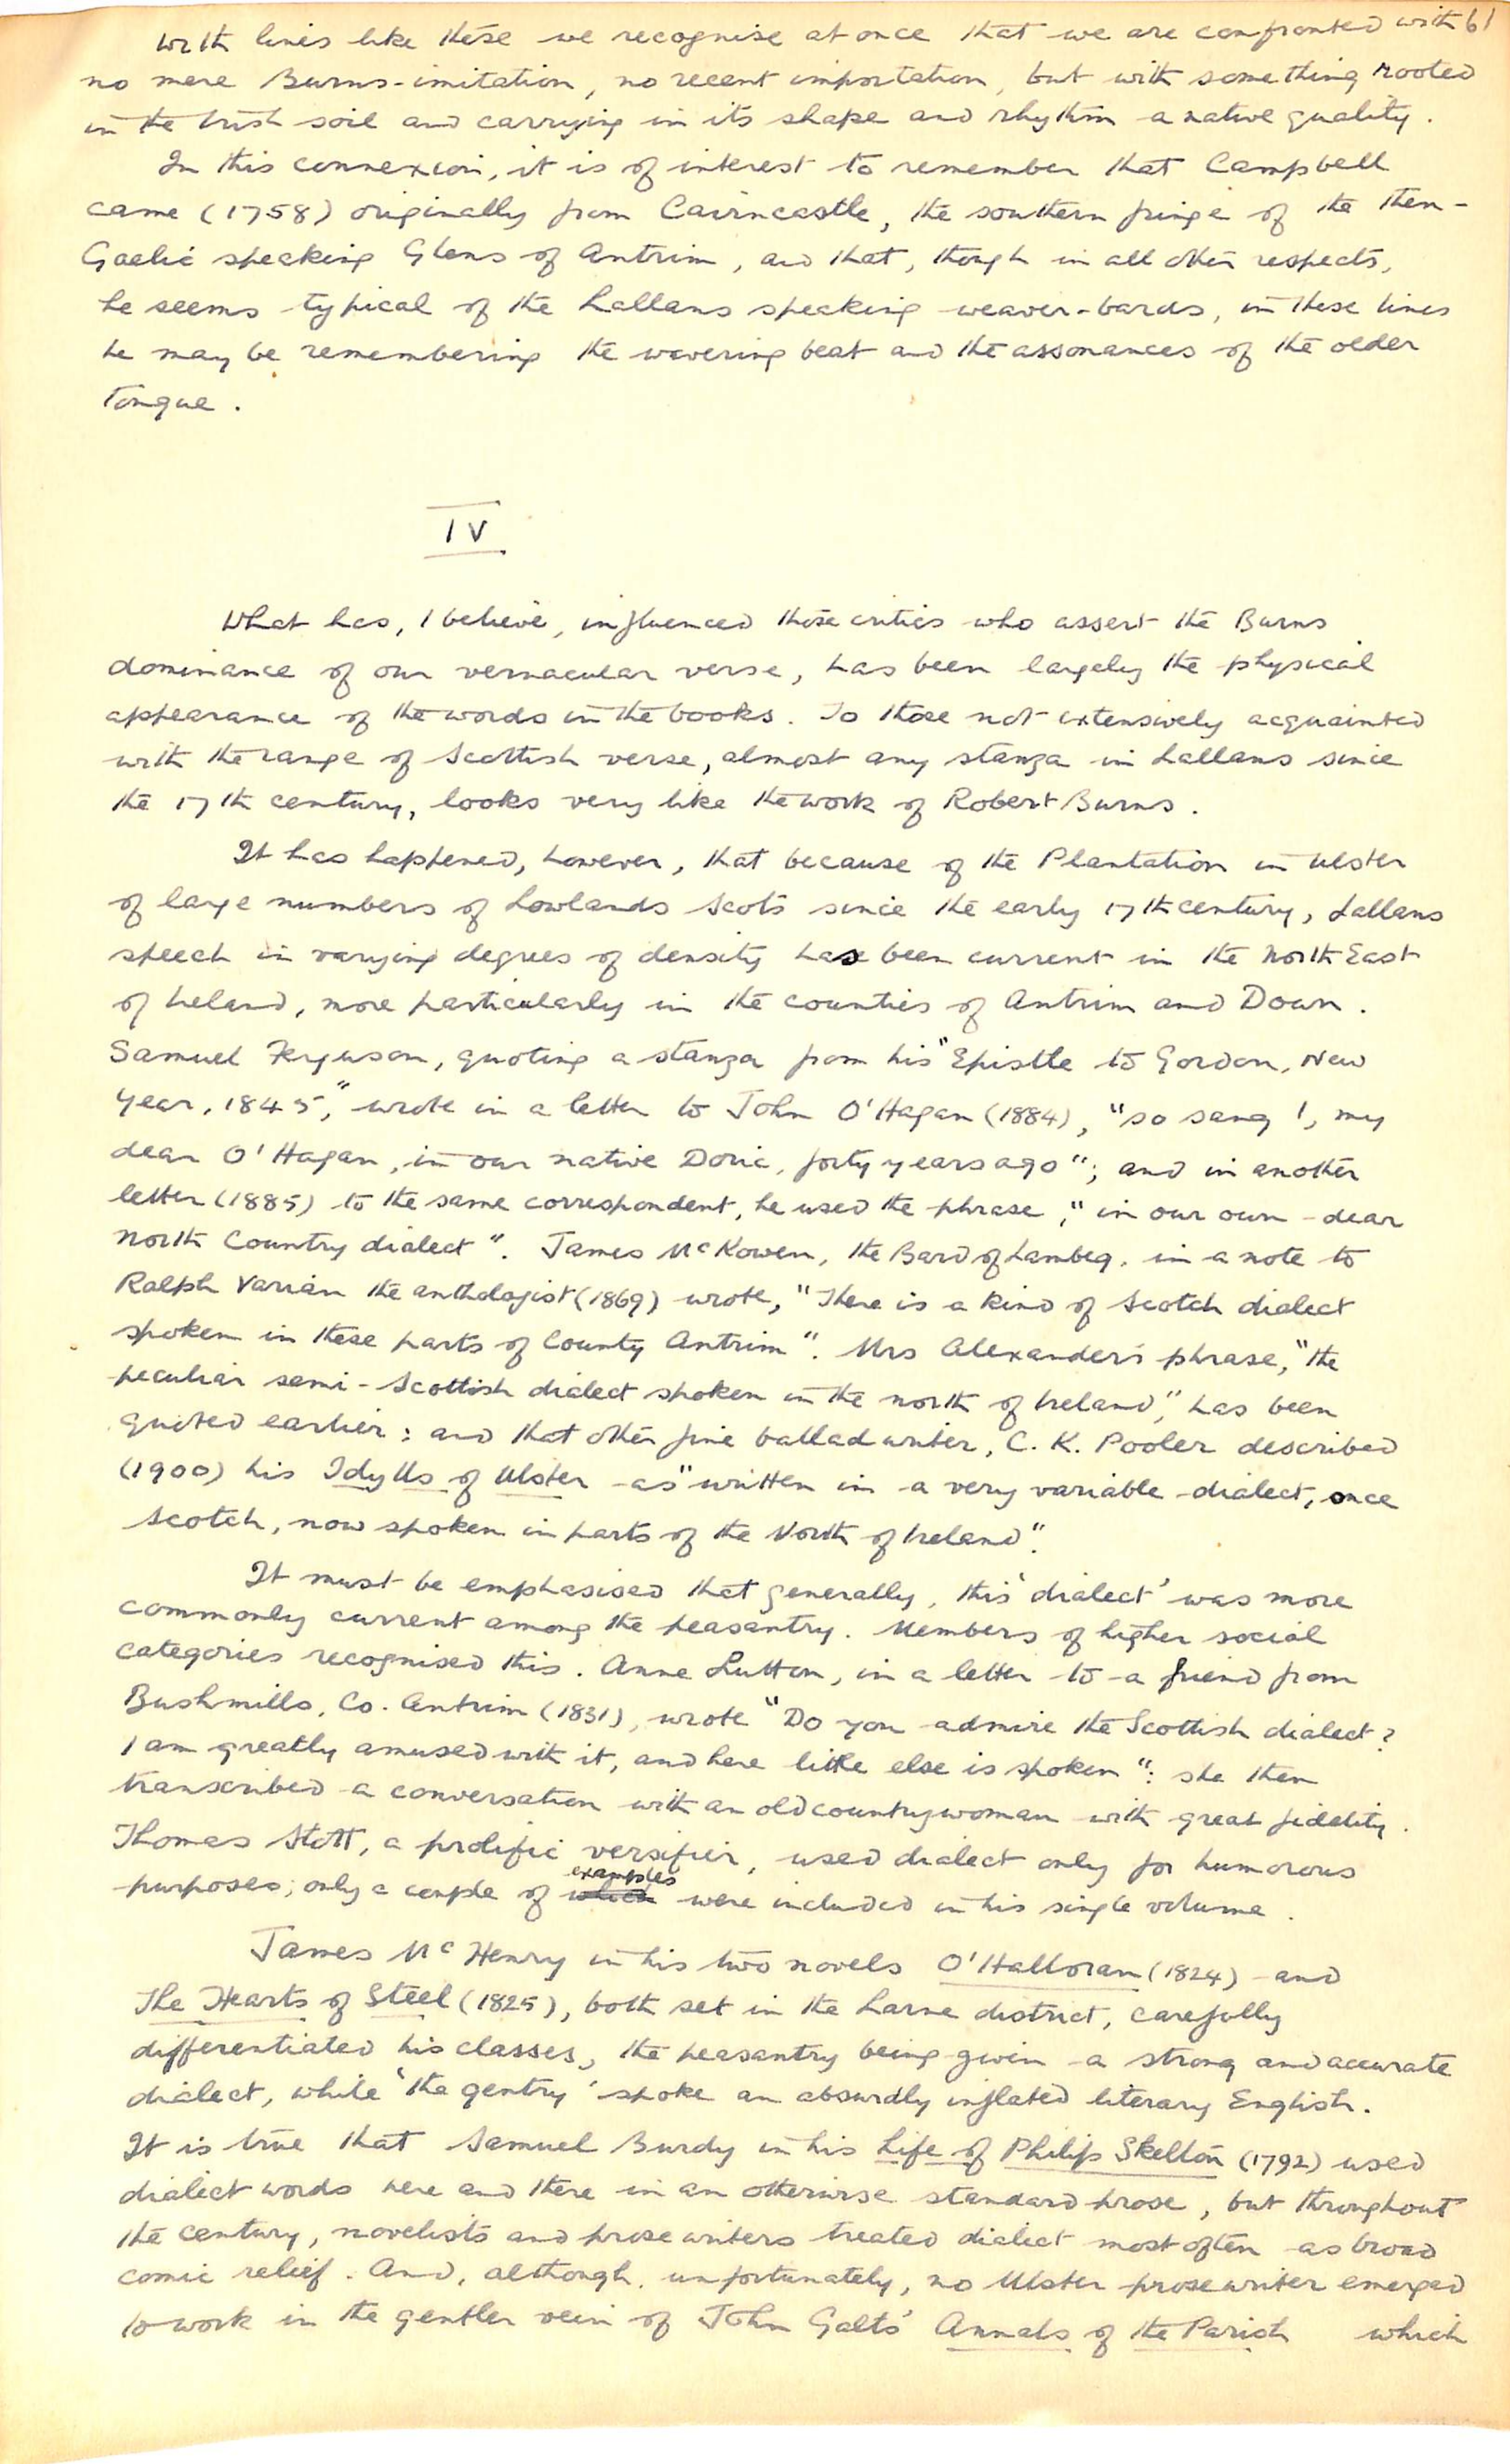 With lines like these we recognise at once that we are confronted with 61
no mere Burns-imitation, no recent importation, but with something rooted
in the Irish soil and carrying in its shape and rhythm a native quality.
In this connexion, it is of interest to remember that Campbell
came (1758) originally from Cairncastle, the southern fringe of the then-
Gaelic speaking Glens of Antrim, and that, though in all other respects,
he seems typical of the Lallans speaking weaver-bards, in these lines
he may be remembering the wavering beat and the assonances of the older
tongue.
IV
What has, I believe, influenced those critics who assert the Burns
dominance of our vernacular verse, has been largely the physical
appearance of the words in the books. To those not extensively acquainted
with the range of Scottish verse, almost any stanza in Lallans since
the 17th century, looks very like the work of Robert Burns.
It has happened, however, that because of the Plantation in Ulster
of large numbers of Lowlands Scots since the early 17th century, Lallans
speech in varying degrees of density has been current in the North East
of Ireland, more particularly in the counties of Antrim and Down.
Samuel Ferguson, quoting a stanza from his "Epistle to Gordon, New
Year, 1845," wrote in a letter to John O'Hagan (1884), "so sang I, my
dear O'Hagan, in our native Doric, forty years ago"; and in another
letter (1885) to the same correspondent, he used the phrase, "in our own dear
North Country dialect". James McKowen, the Bard of Lambeg, in a note to
Ralph Varian the anthologist (1869) wrote, "There is a kind of Scotch dialect
spoken in these parts of County Antrim". Mrs Alexander's phrase, "the
peculiar semi-Scottish dialect spoken in the north of Ireland", has been
quoted earlier; and that other fine ballad writer, C. K. Pooler described
(1900) his Idylls of Ulster as "written in a very variable dialect, once
Scotch, now spoken in parts of the North of Ireland".
It must be emphasised that generally, this 'dialect' was more
commonly current among the peasantry. Members of higher social
categories recognised this. Anne Lutton, in a letter to a friend from
Bushmills, Co. Antrim (1831), wrote "Do you admire the Scottish dialect?
I am greatly amused with it, and here little else is spoken": she then
transcribed a conversation with an old countrywoman with great fidelity.
Thomas Stott, a prolific versifier, used dialect only for humorous
purposes; only a couple of examples were included in his single volume.
James McHenry in his two novels O'Halloran (1824) and
The Hearts of Steel (1825), both set in the Larne district, carefully
differentiated his classes, the peasantry being given a strong and accurate
dialect, while 'the gentry' spoke an absurdly inflated literary English.
It is true that Samuel Burdy in his Life of Philip Skelton (1792) used
dialect words here and there in an otherwise standard prose, but throughout
the century, novelists and prose writers treated dialect most often as broad
comic relief. And, although, unfortunately, no Ulster prose writer emerged
to work in the gentler vein of John Galts' Annals of the Parish which